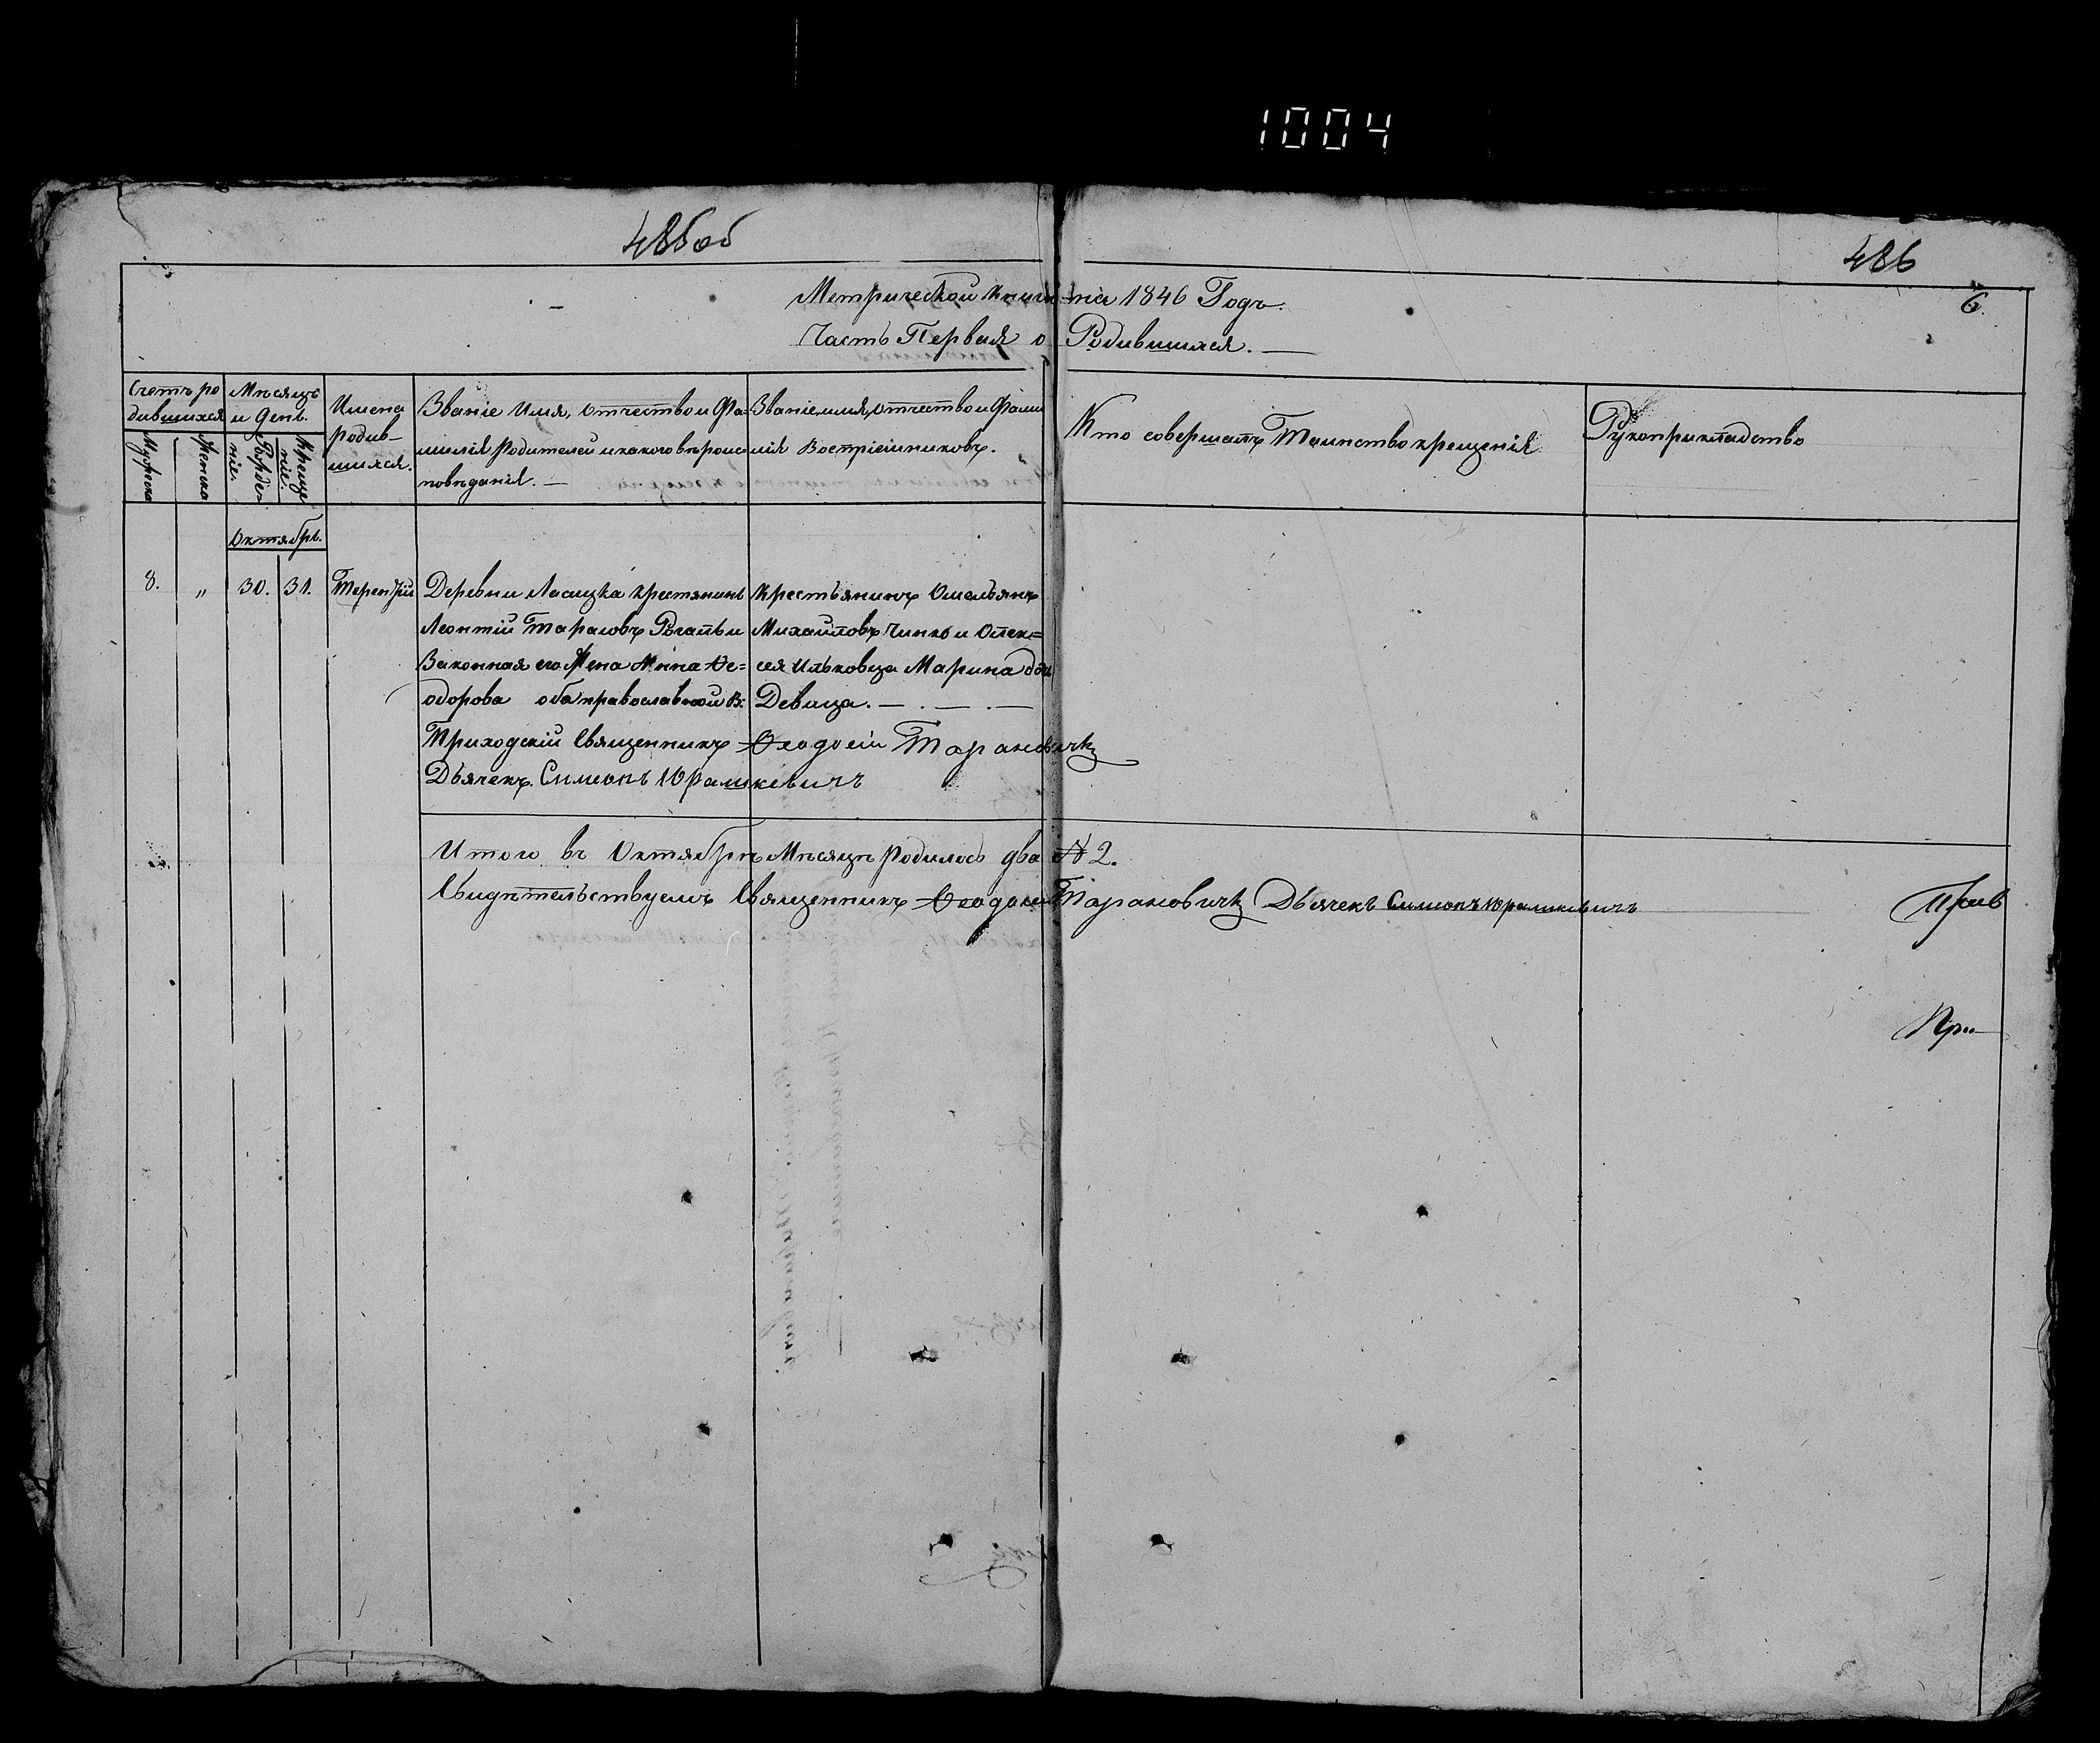 1004
485об
486
6.
Метрической книги на 1846 Годъ.
Часть Первая о Родившихся. —
Счетъ ро
дившихся
Мужеска
Женска
Мѣсяцъ
и день.
Рожде-
ніе.
Креще
ніе.
Имена
родив-
шихся.
Званіе Имя, отчество и Фа-
милія Родителей и какого вѣроис
повѣданія. —
Званіе имя, отчество и Фами
лія Воспріемниковъ.
Кто совершалъ Таинство крещенія
Рукоприкладство
Октябрь.
8. „ 30. 31. Терентій
Деревни Ласицка крестянинъ
Леонтій Тарасовъ и
Законная его Жена Анна Ѳе=
одорова оба православной В:
Крестьянинъ Омельянъ
Михайловъ Чинко и Олек=
сея Ильковца Марина дочь
Девица. — . — . —
Приходскій Священникъ Ѳеодосій Тарановичъ
Дьячекъ Симеонъ Юрашкевичъ
Итого въ Октябрѣ Мѣсяцѣ родилось два № 2.
Свидѣтельствуемъ Священникъ Ѳеодосій Тарановичъ Дьячекъ Симеонъ Юрашкевичъ
При